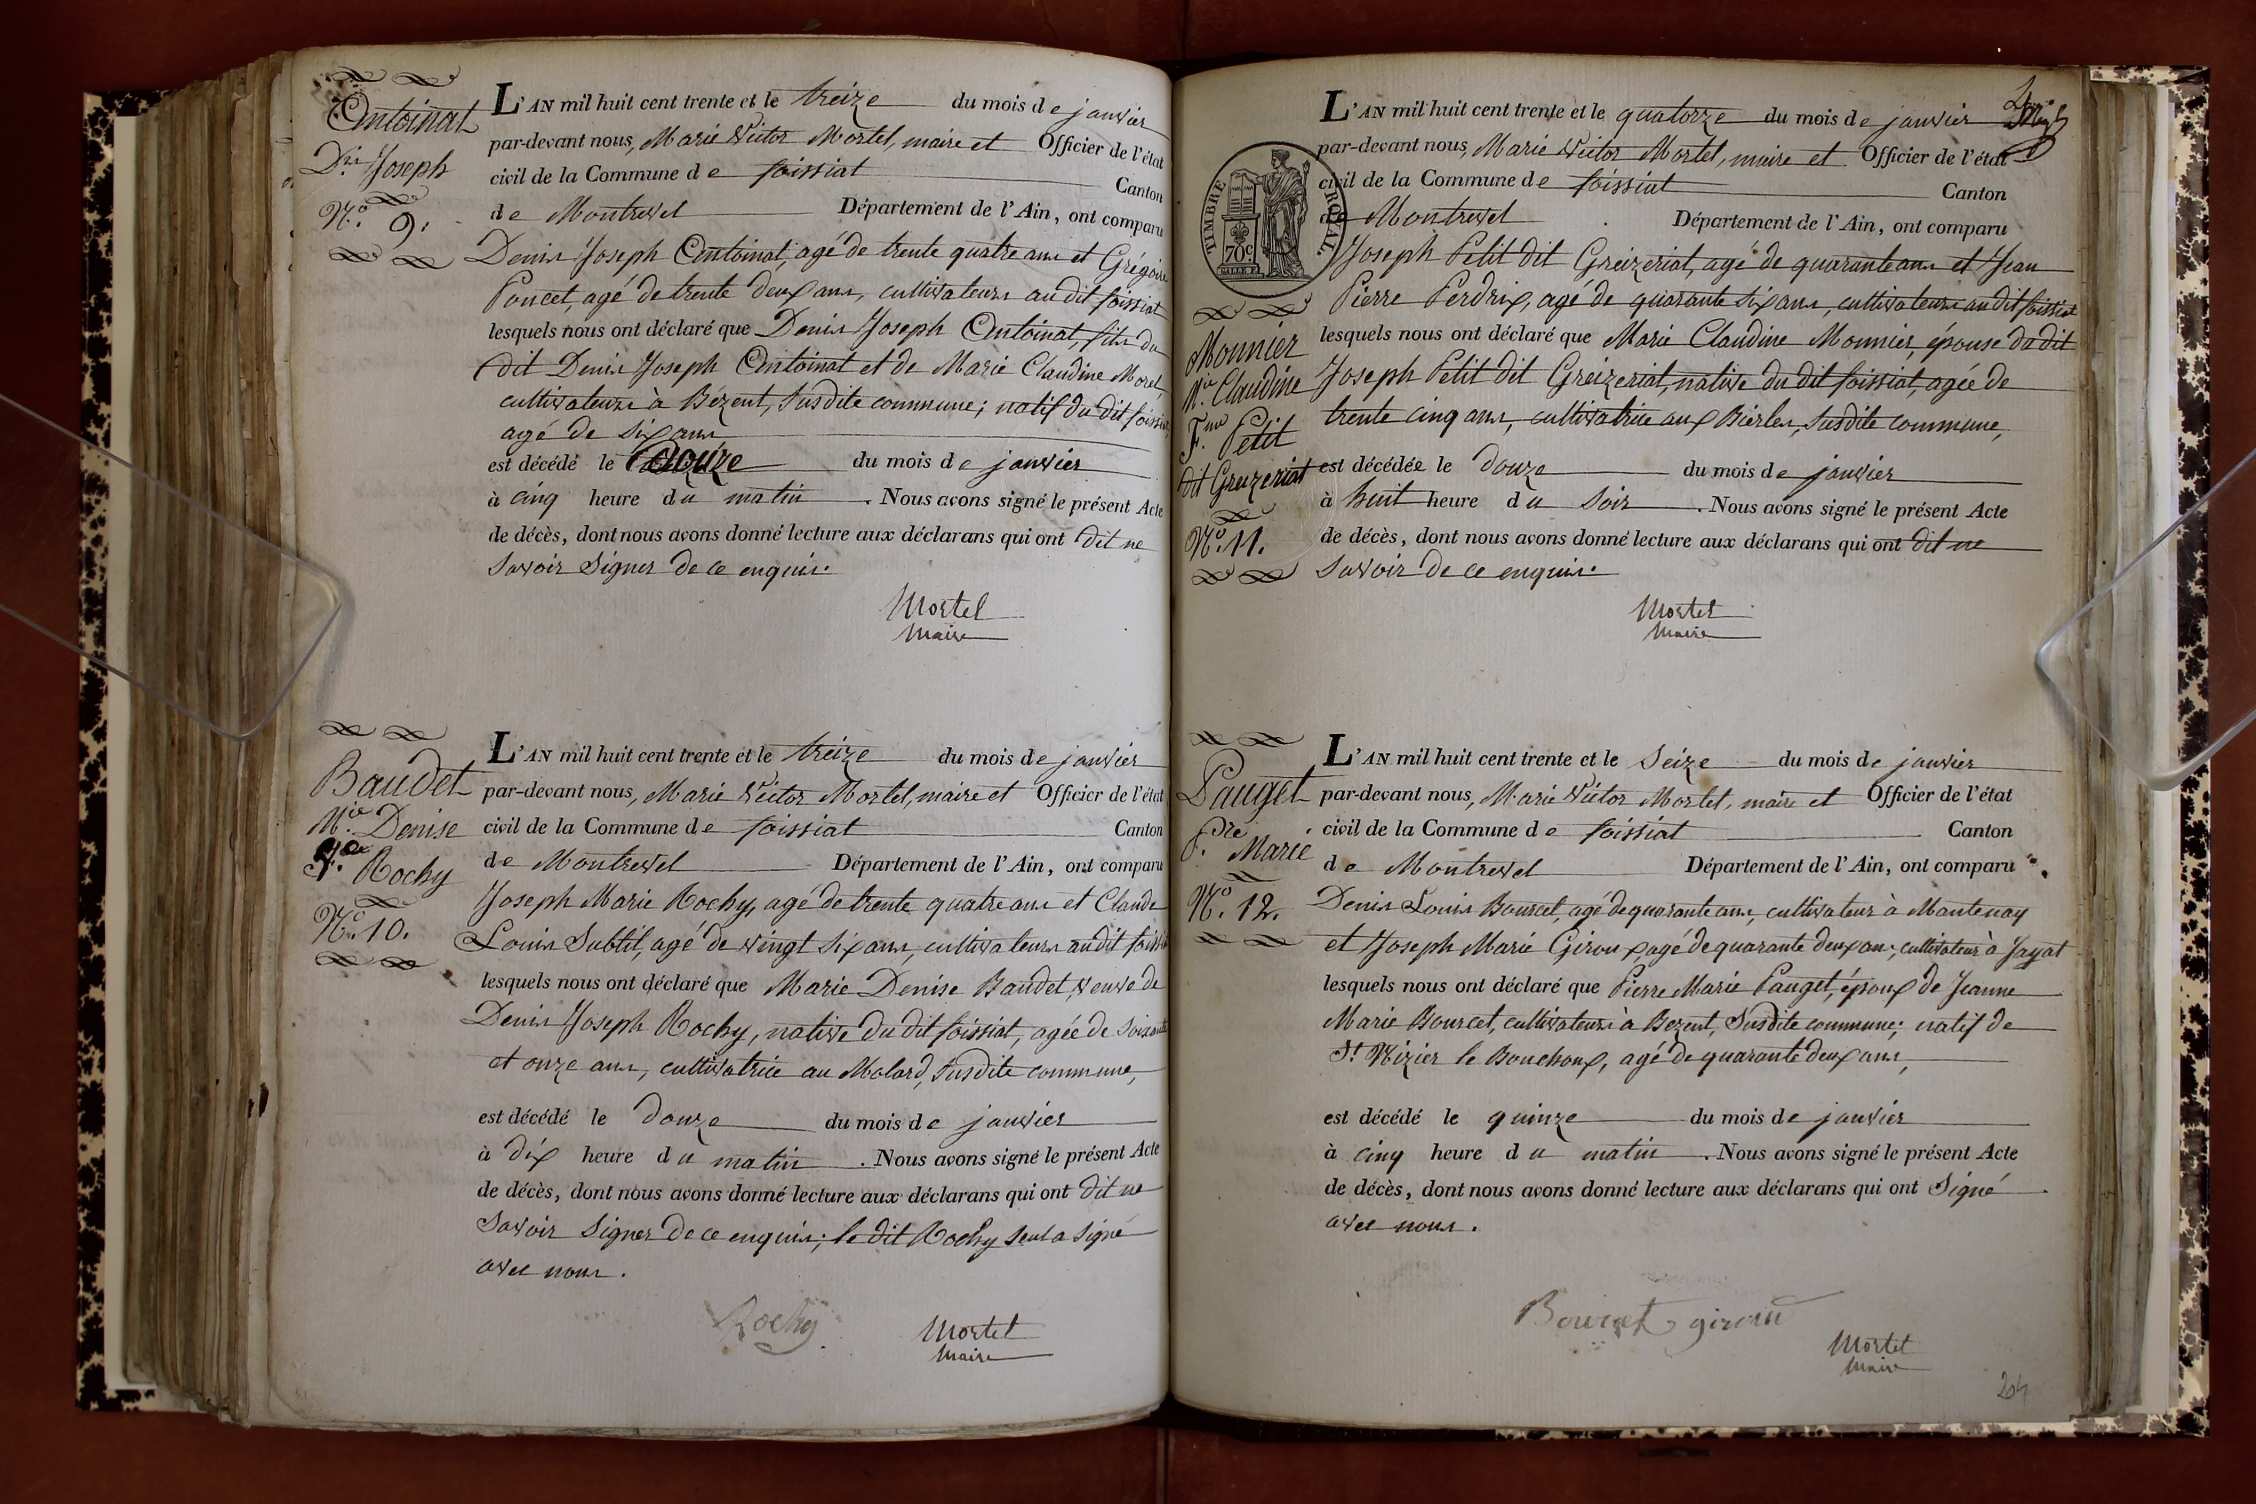 Antoinat
Dis Joseph
N.º 9.
L'AN mil huit cent trente et le treize du mois de janvier
par-devant nous, Marie Victor Mortel, maire et Officier de l'état
civil de la Commune de foissiat Canton
de Montrevel Département de l'Ain, ont comparu
Denis Joseph Antoinat, agé de trente quatre ans et Grégoire
Poncet, agé de trente deux ans, cultivateurs au dit foissiat
lesquels nous ont déclaré que Denis Joseph Antoinat, fils du
dit Denis Joseph Antoinat et de Marie Claudine Morel,
cultivateurs à Bézent, susdite commune; natif du dit foissiat,
agé de six ans
est décédé le douze du mois de janvier
à cinq heure du matin. Nous avons signé le présent Acte
de décès, dont nous avons donné lecture aux déclarans qui ont dit ne
savoir signer de ce enquis.
Mortel
Maire
Baudet
M.ie Denise
Rochy
N.º 10.
L'AN mil huit cent trente et le treize du mois de janvier
par-devant nous, Marie Victor Mortel, maire et Officier de l'état
civil de la Commune de foissiat Canton
de Montrevel Département de l'Ain, ont comparu
Joseph Marie Rochy, agé de trente quatre ans et Claude
Louis Subtil, agé de vingt six ans, cultivateurs au dit foissiat
lesquels nous ont déclaré que Marie Denise Baudet, veuve de
Denis Joseph Rochy, native du dit foissiat, agée de soixante
et onze ans, cultivatrice au Molard, susdite commune,
est décédé le douze du mois de janvier
à dix heure du matin. Nous avons signé le présent Acte
de décès, dont nous avons donné lecture aux déclarans qui ont dit ne
savoir signer de ce enquis; le dit Rochy seul a signé
avec nous.
Rochy
Mortel
Maire
TIMBRE ROYAL
70c
Monnier
M.ie Claudine
F.me Petit
dit Greizeriat
N.º 11.
L'AN mil huit cent trente et le quatorze du mois de janvier
par-devant nous, Marie Victor Mortel, maire et Officier de l'état
civil de la Commune de foissiat Canton
de Montrevel Département de l'Ain, ont comparu
Joseph Petit dit Greizeriat, agé de quarante ans et Jean
Pierre Perdrix, agé de quarante six ans, cultivateurs au dit foissiat
lesquels nous ont déclaré que Marie Claudine Monnier, épouse du dit
Joseph Petit dit Greizeriat, native du dit foissiat, agée de
trente cinq ans, cultivatrice aux Bierles, susdite commune,
est décédée le douze du mois de janvier
à huit heure du soir. Nous avons signé le présent Acte
de décès, dont nous avons donné lecture aux déclarans qui ont dit ne
savoir de ce enquis.
Mortel
Maire
Pauget
P.re Marie
N.º 12.
L'AN mil huit cent trente et le seize du mois de janvier
par-devant nous, Marie Victor Mortel, maire et Officier de l'état
civil de la Commune de foissiat Canton
de Montrevel Département de l'Ain, ont comparu
Denis Louis Bourcet, agé de quarante ans, cultivateur à Mantenay
et Joseph Marie Giroux, agé de quarante deux an; cultivateur à Jayat
lesquels nous ont déclaré que Pierre Marie Pauget, époux de Jeanne
Marie Bourcet, cultivateurs à Bezent, susdite commune; natif de
St Nizier le Bouchoux, agé de quarante deux ans,
est décédé le quinze du mois de janvier
à cinq heure du matin. Nous avons signé le présent Acte
de décès, dont nous avons donné lecture aux déclarans qui ont signé
avec nous.
Bourcet giroux
Mortel
Maire
204